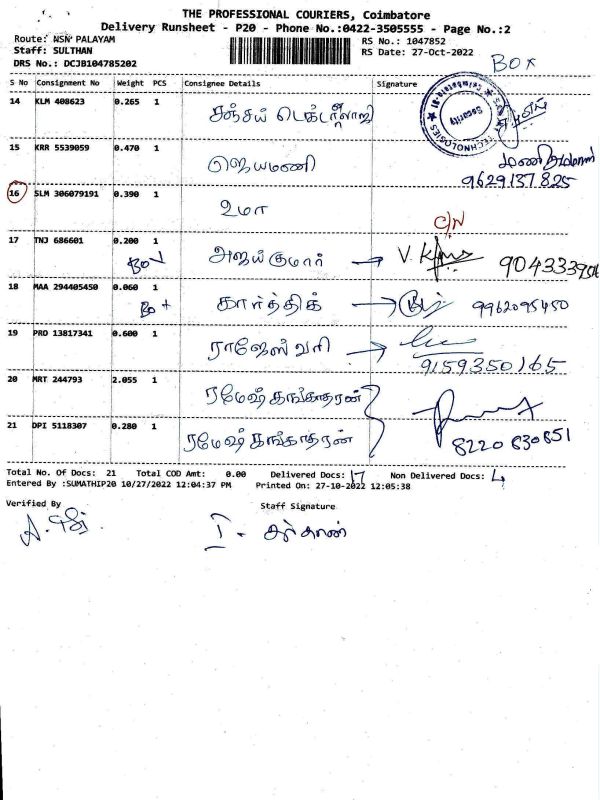 THE PROFESSIONAL COURIERS, Coimbatore
Delivery Runsheet - P20 - Phone No.:0422-3505555 - Page No.:2
Route: NSN PALAYAM
RS No.: 1047852
Staff: SULTHAN
RS Date: 27-Oct-2022
DRS No.: DCJB104785202
BOX
S No Consignment No Weight PCS Consignee Details Signature
14 KLM 408623 0.265 1 சஞ்சய்
TECHNOLOGIES Security Coimbatore
15 KRR 5539059 0.470 1 ஜெயமணி
9629137825
16 SLM 306079191 0.390 1 உமா
C/N
17 TNJ 686601 0.200 1 அஜய்குமார் V.
Box
18 MAA 294405450 0.060 1 கார்த்திக் 9962095450
Box
19 PRO 13817341 0.600 1 ராஜேஸ்வரி
9159350165
20 MRT 244793 2.055 1 ரமேஷ் கங்காதரன்
21 DPI 5118307 0.280 1 ரமேஷ் கங்காதரன் 8220830851
Total No. Of Docs: 21 Total COD Amt: 0.00 Delivered Docs: 17 Non Delivered Docs: 4
Entered By :SUMATHIP20 10/27/2022 12:04:37 PM Printed On: 27-10-2022 12:05:38
Verified By Staff Signature